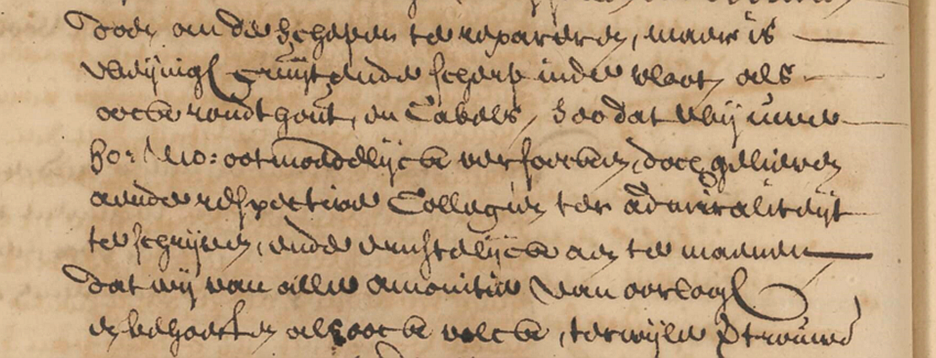 doen om de schepen te repareren, maer is
weijnigh cruijt ende scherp inde vloot, als
oock rondt hout, en Cabels, soo dat wij uwe
ho: mo: ootmoedelijck versoecken, doch gelieven
aende respective Collegien ter admiraliteijt
te schrijven, ende ernstelijck aen te maenen
dat wij van alle amonitie van oorlogh
en behoeften als oock volck, terwijle